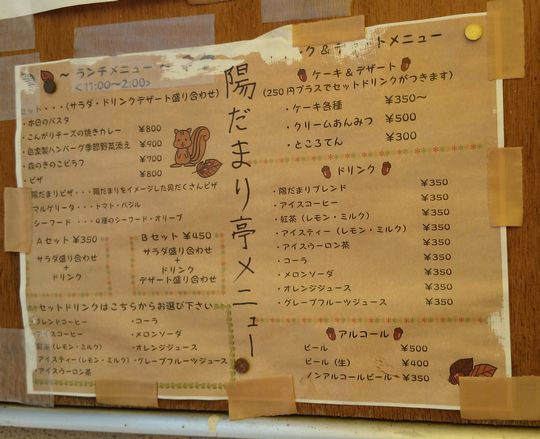 ~ ランチメニュー ~
<11:00~2:00>
セット・・・(サラダ・ドリンクデザート盛り合わせ)
・本日のパスタ ¥800
・こんがりチーズの焼きカレー ¥800
・自家製ハンバーグ季節野菜添え ¥900
・森のきのこピラフ ¥700
・ピザ ¥800
陽だまりピザ・・・陽だまりをイメージした貝だくさんピザ
マルゲリータ・・・トマト・バジル
シーフード・・・4種のシーフード・オリーブ
Aセット ¥350
サラダ盛り合わせ
+
ドリンク
Bセット ¥450
サラダ盛り合わせ
+
ドリンク
デザート盛り合わせ
セットドリンクはこちらからお選び下さい
・ブレンドコーヒー
・アイスコーヒー
・紅茶(レモン・ミルク)
・アイスティー(レモン・ミルク)
・アイスウーロン茶
・コーラ
・メロンソーダ
・オレンジジュース
・グレープフルーツジュース
陽だまり亭メニュー
ク&デ ートメニュー
ケーキ&デザート
(250円プラスでセットドリンクがつきます)
・ケーキ各種 ¥350~
・クリームあんみつ ¥500
・ところてん ¥300
ドリンク
・陽だまりブレンド ¥350
・アイスコーヒー ¥350
・紅茶(レモン・ミルク) ¥350
・アイスティー(レモン・ミルク) ¥350
・アイスウーロン茶 ¥350
・コーラ ¥350
・メロンソーダ ¥350
・オレンジジュース ¥350
・グレープフルーツジュース ¥350
アルコール
ビール ¥500
ビール(生) ¥400
ノンアルコールビール ¥350